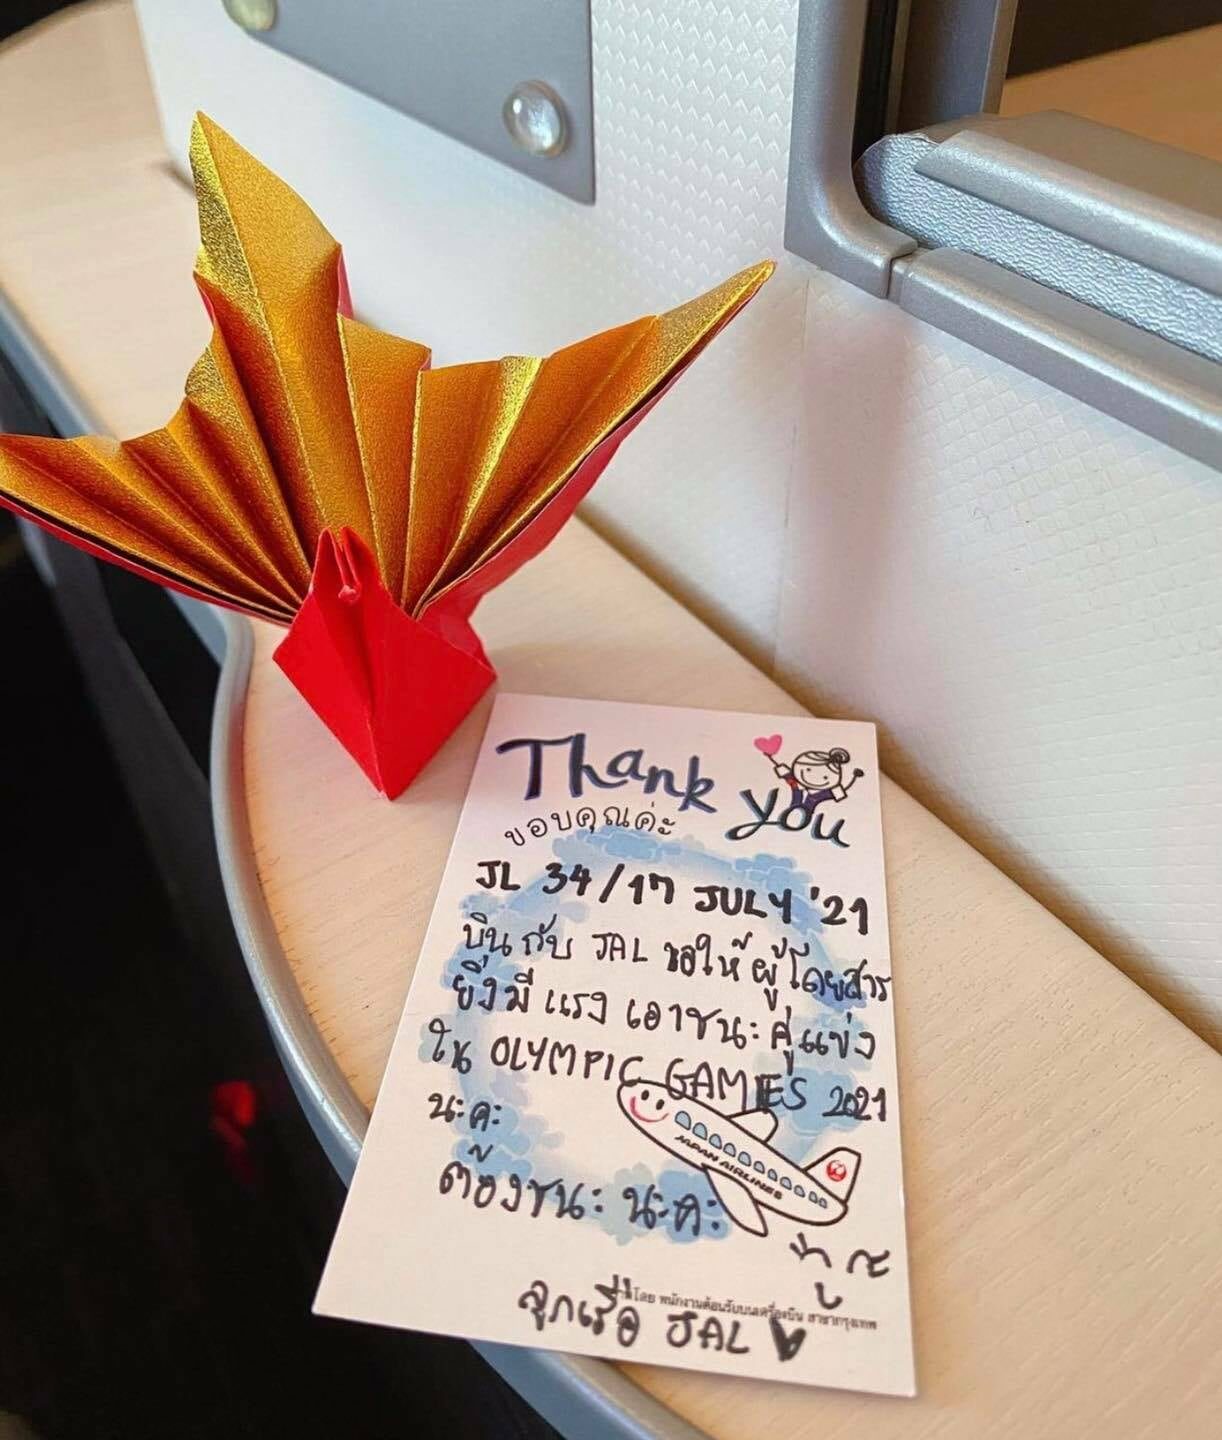 Thank you
ขอบคุณค่ะ
JL 34/17 JULY '21
บินกับ JAL ขอให้ผู้โดยสาร
ยิ่งมีแรงเอาชนะคู่แข่ง
ใน OLYMPIC GAMES 2021
นะคะ
JAPAN AIRLINES
ต้องชนะ นะคะ
โดย พนักงานต้อนรับบนเครื่องบิน สาขากรุงเทพ
ลูกเรือ JAL